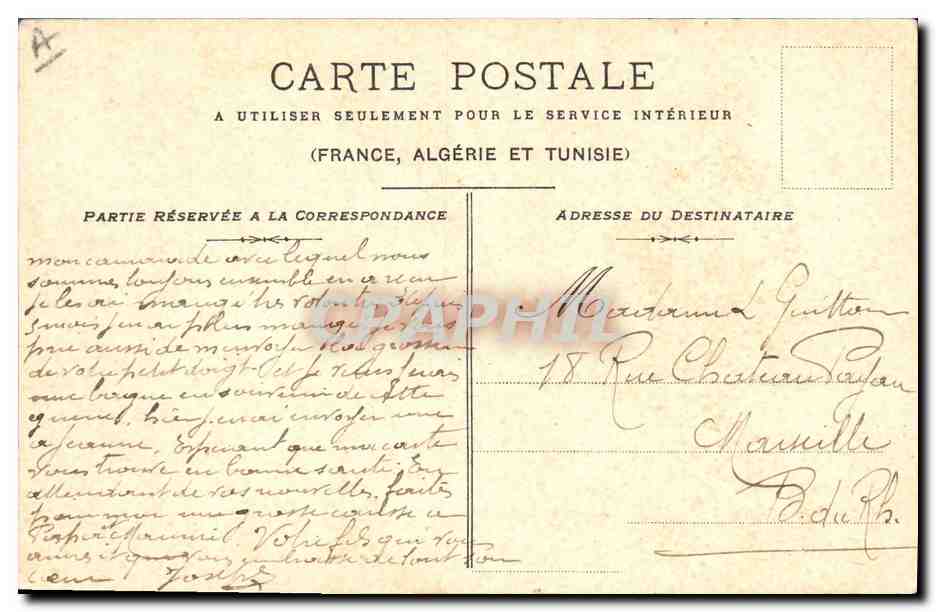 A
CARTE POSTALE
A UTILISER SEULEMENT POUR LE SERVICE INTÉRIEUR
(FRANCE, ALGÉRIE ET TUNISIE)
PARTIE RÉSERVÉE A LA CORRESPONDANCE
mon camarade avec lequel nous
sommes toujours ensemble
je les ai mangé très volontiers depuis
5 mois j'en ai plus mangé je vous
prie aussi de m'envoyer la grosseur
de votre petit doigt et je vous ferais
une bague en souvenir de
hier j'en ai envoyer une
a Jeanne. Espérant que ma carte
vous trouve en bonne santé. En
attendant de vos nouvelles, faites
pour moi une grosse caresse a
Votre fils qui vous
aime et qui vous embrasse de tout son
cœur Joseph
ADRESSE DU DESTINATAIRE
Madame L Guitton
18 Rue Chateau Payan
Marseille
B. du Rh.
CPAPHIL